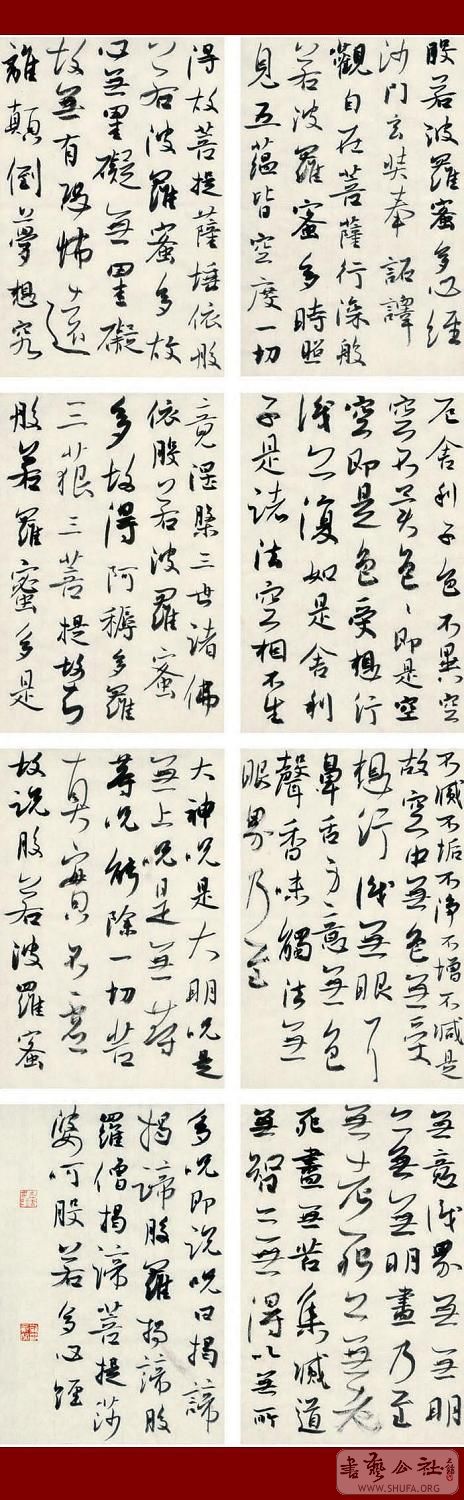 般若波羅蜜多心經
沙門玄奘奉詔譯
觀自在菩薩行深般
若波羅蜜多時照
見五蘊皆空度一切
厄舍利子色不異空
空不異色〻即是空
空即是色受想行
識亦復如是舍利
子是諸法空相不生
不滅不垢不淨不增不減是
故空中無色無受
想行識無眼耳
鼻舌身意無色
聲香味觸法無
眼界乃至
無意識界無無明
亦無無明盡乃至
無老死亦無老
死盡無苦集滅道
無智亦無得以無所
得故菩提薩埵依般
若波羅蜜多故
心無罣礙無罣礙
故無有恐怖遠
離顛倒夢想究
竟涅槃三世諸佛
依般若波羅蜜
多故得阿耨多羅
三藐三菩提故知
般若羅蜜多是
大神咒是大明咒是
無上咒是無等
等咒能除一切苦
真實不虛
故說般若波羅蜜
多咒即說咒曰揭諦
揭諦般羅揭諦般
羅僧揭諦菩提莎
婆呵般若多心經
書藝公社
WWW.SHUFA.ORG